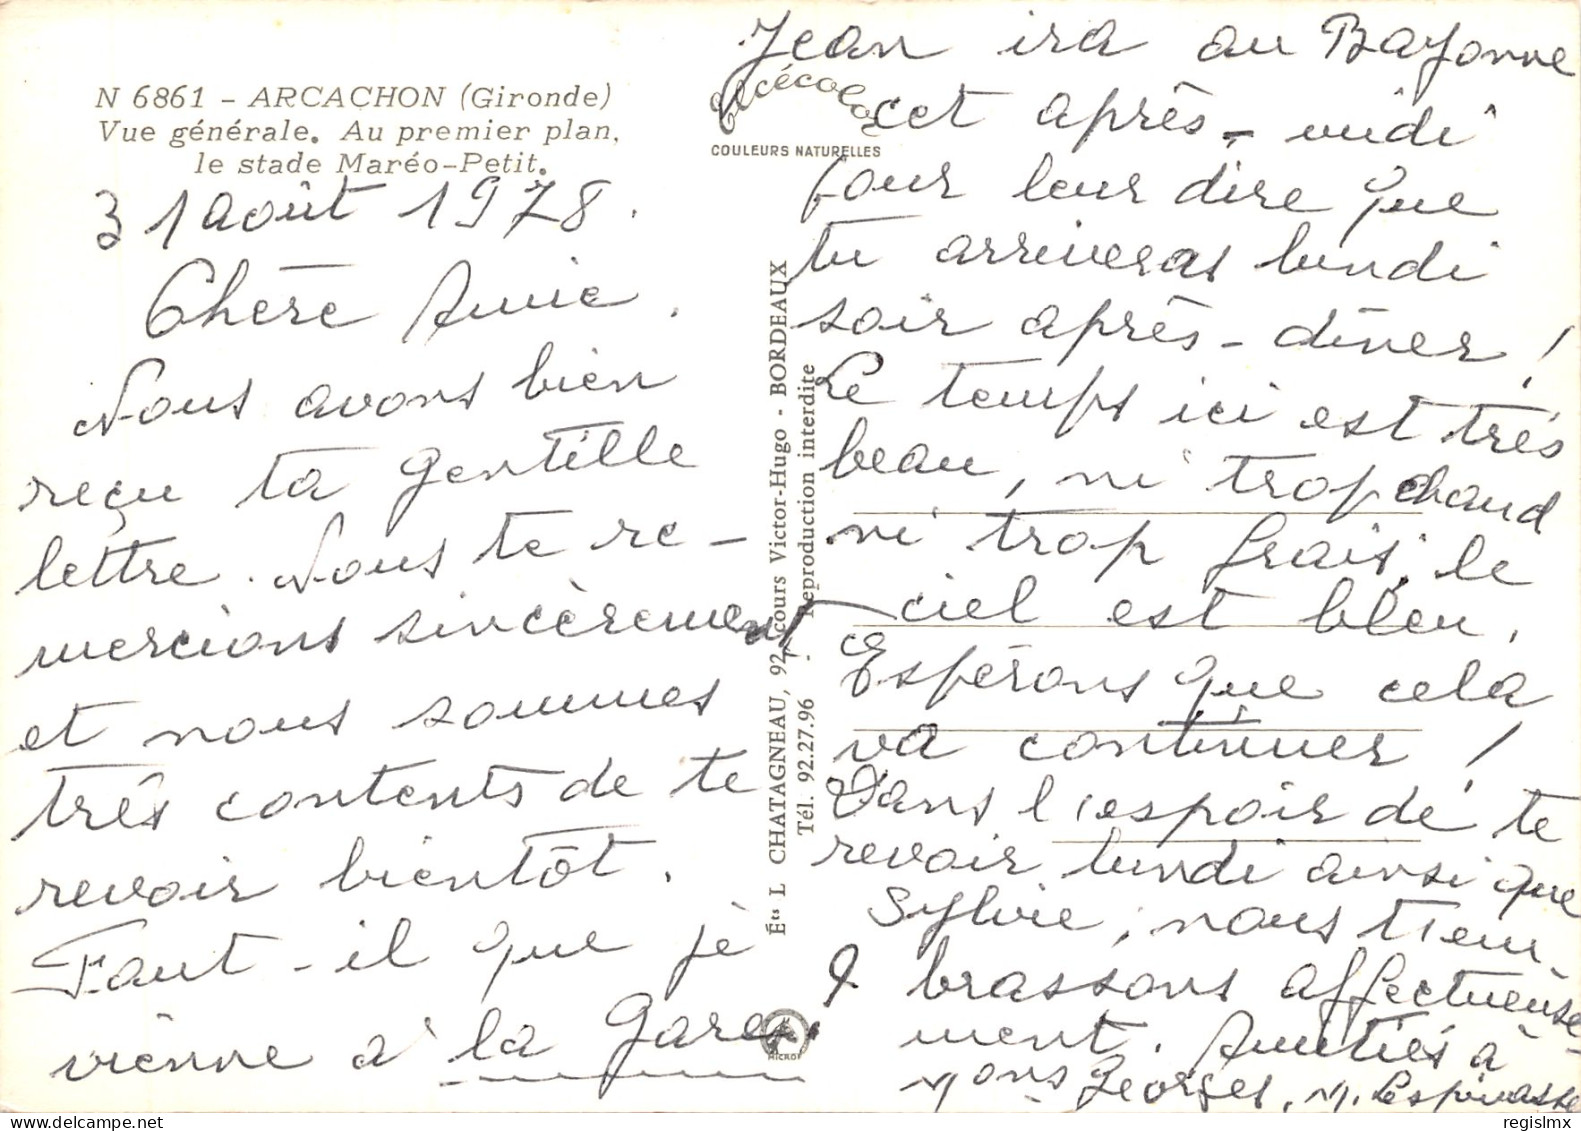 N 6861 - ARCACHON (Gironde)
Vue générale. Au premier plan,
le stade Maréo-Petit.
31 août 1978.
Chère Amie.
Nous avons bien
reçu ta gentille
lettre. Nous te re-
mercions sincèrement
et nous sommes
très contents de te
revoir bientôt.
Faut-il que je
vienne à la Gare
Éts L CHATAGNEAU, 92, cours Victor-Hugo - BORDEAUX
Tél. 92.27.96 - Reproduction interdite
COULEURS NATURELLES
Jean ira au Bayonne
cet après-midi
pour leur dire que
tu arriveras lundi
soir après-dîner!
Le temps ici est très
beau, ni trop chaud
ni trop frais, le
ciel est bleu.
Espérons que cela
va continuer!
Dans l'espoir de te
revoir lundi ainsi que
Sylvie, nous t'em-
brassons affectueuse-
ment. Amitiés à
Mons Georges. M. Lespinasse
regislmx